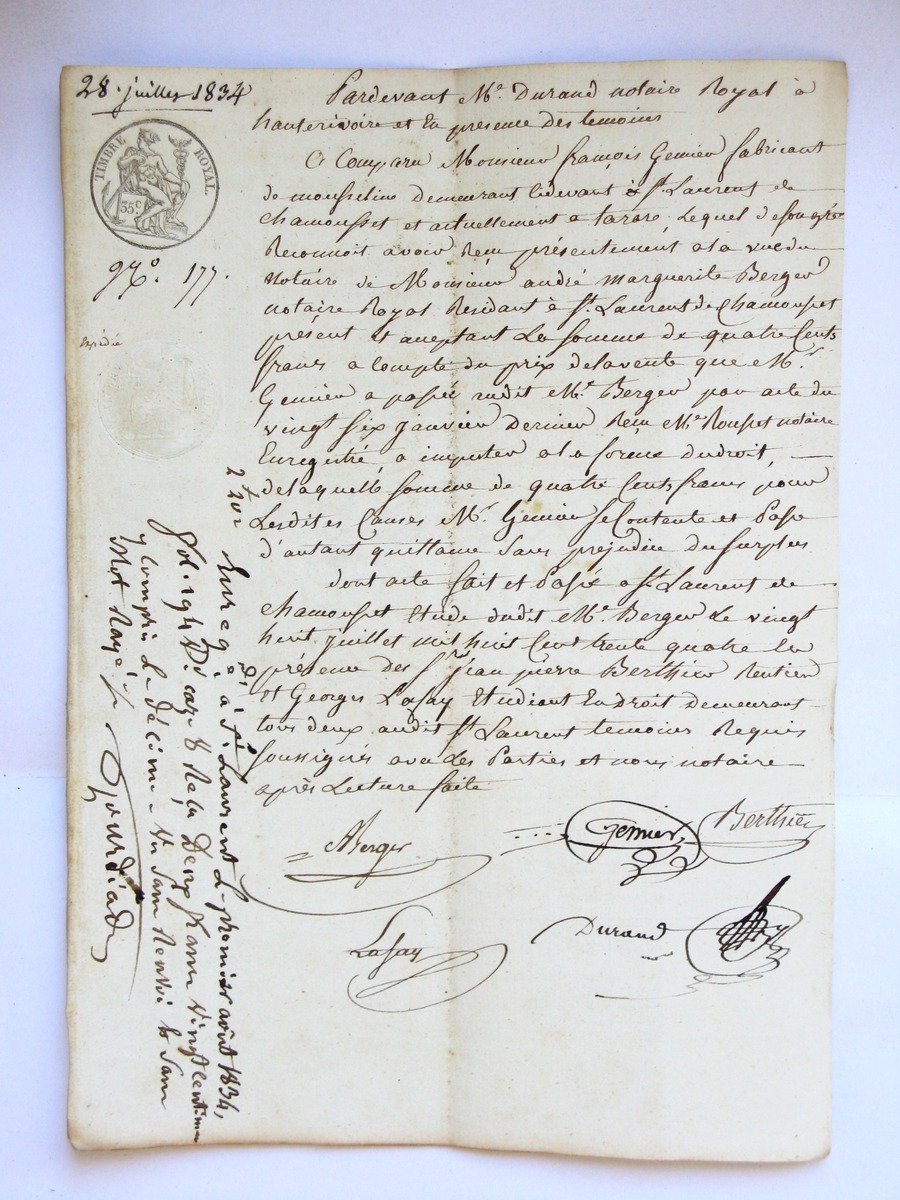 28. juillet 1834
TIMBRE ROYAL
35c
N.º 177.
Expédié
Pardevant Me. Durand notaire Royal à
hauterivoire et En présence des temoins
A Comparu Monsieur françois Gemier fabricant
de mousseline Demeurant cidevant à St. Laurent de
Chamousset et actuellement a tarare, Lequel de son gré
Reconnoit avoir Reçu présentement a la vue du
Notaire de Monsieur andré Marguerite Berger
notaire Royal Résidant à St. Laurent de Chamousset
présent et aceptant La somme de quatre Cents
francs a compte du prix de la vente que Mr.
Gemier a passée audit Me. Berger par acte du
vingt six janvier Dernier Reçu Me Rousset notaire
Enregistré, a imputer a la forme du droit,
de laquelle somme de quatre Cents francs pour
Lesdites Causes Mr. Gemier se Contente et Passe
d'autant quittance sans préjudice du surplus
dont acte fait et Passé a St. Laurent de
Chamousset Etude dudit Me. Berger Le vingt
huit juillet mil huit Cent trente quatre En
présence des Srs. jean pierre Berthier Rentier
Et Georges Lafay Etudiant En Droit demeurant
tous deux audit St. Laurent temoins Requis
soussignés avec Les Parties et nous notaire
après Lecture faite
ABerger
Gemier
Berthier
Lafay
Durand
2f 20c
Enreg.é à St. Laurent Le premier août 1834,
fol. 194 Vo. case 8 Reçu Deux francs vingt centimes
y compris Le décime
Mot Rayé
Gourdiad